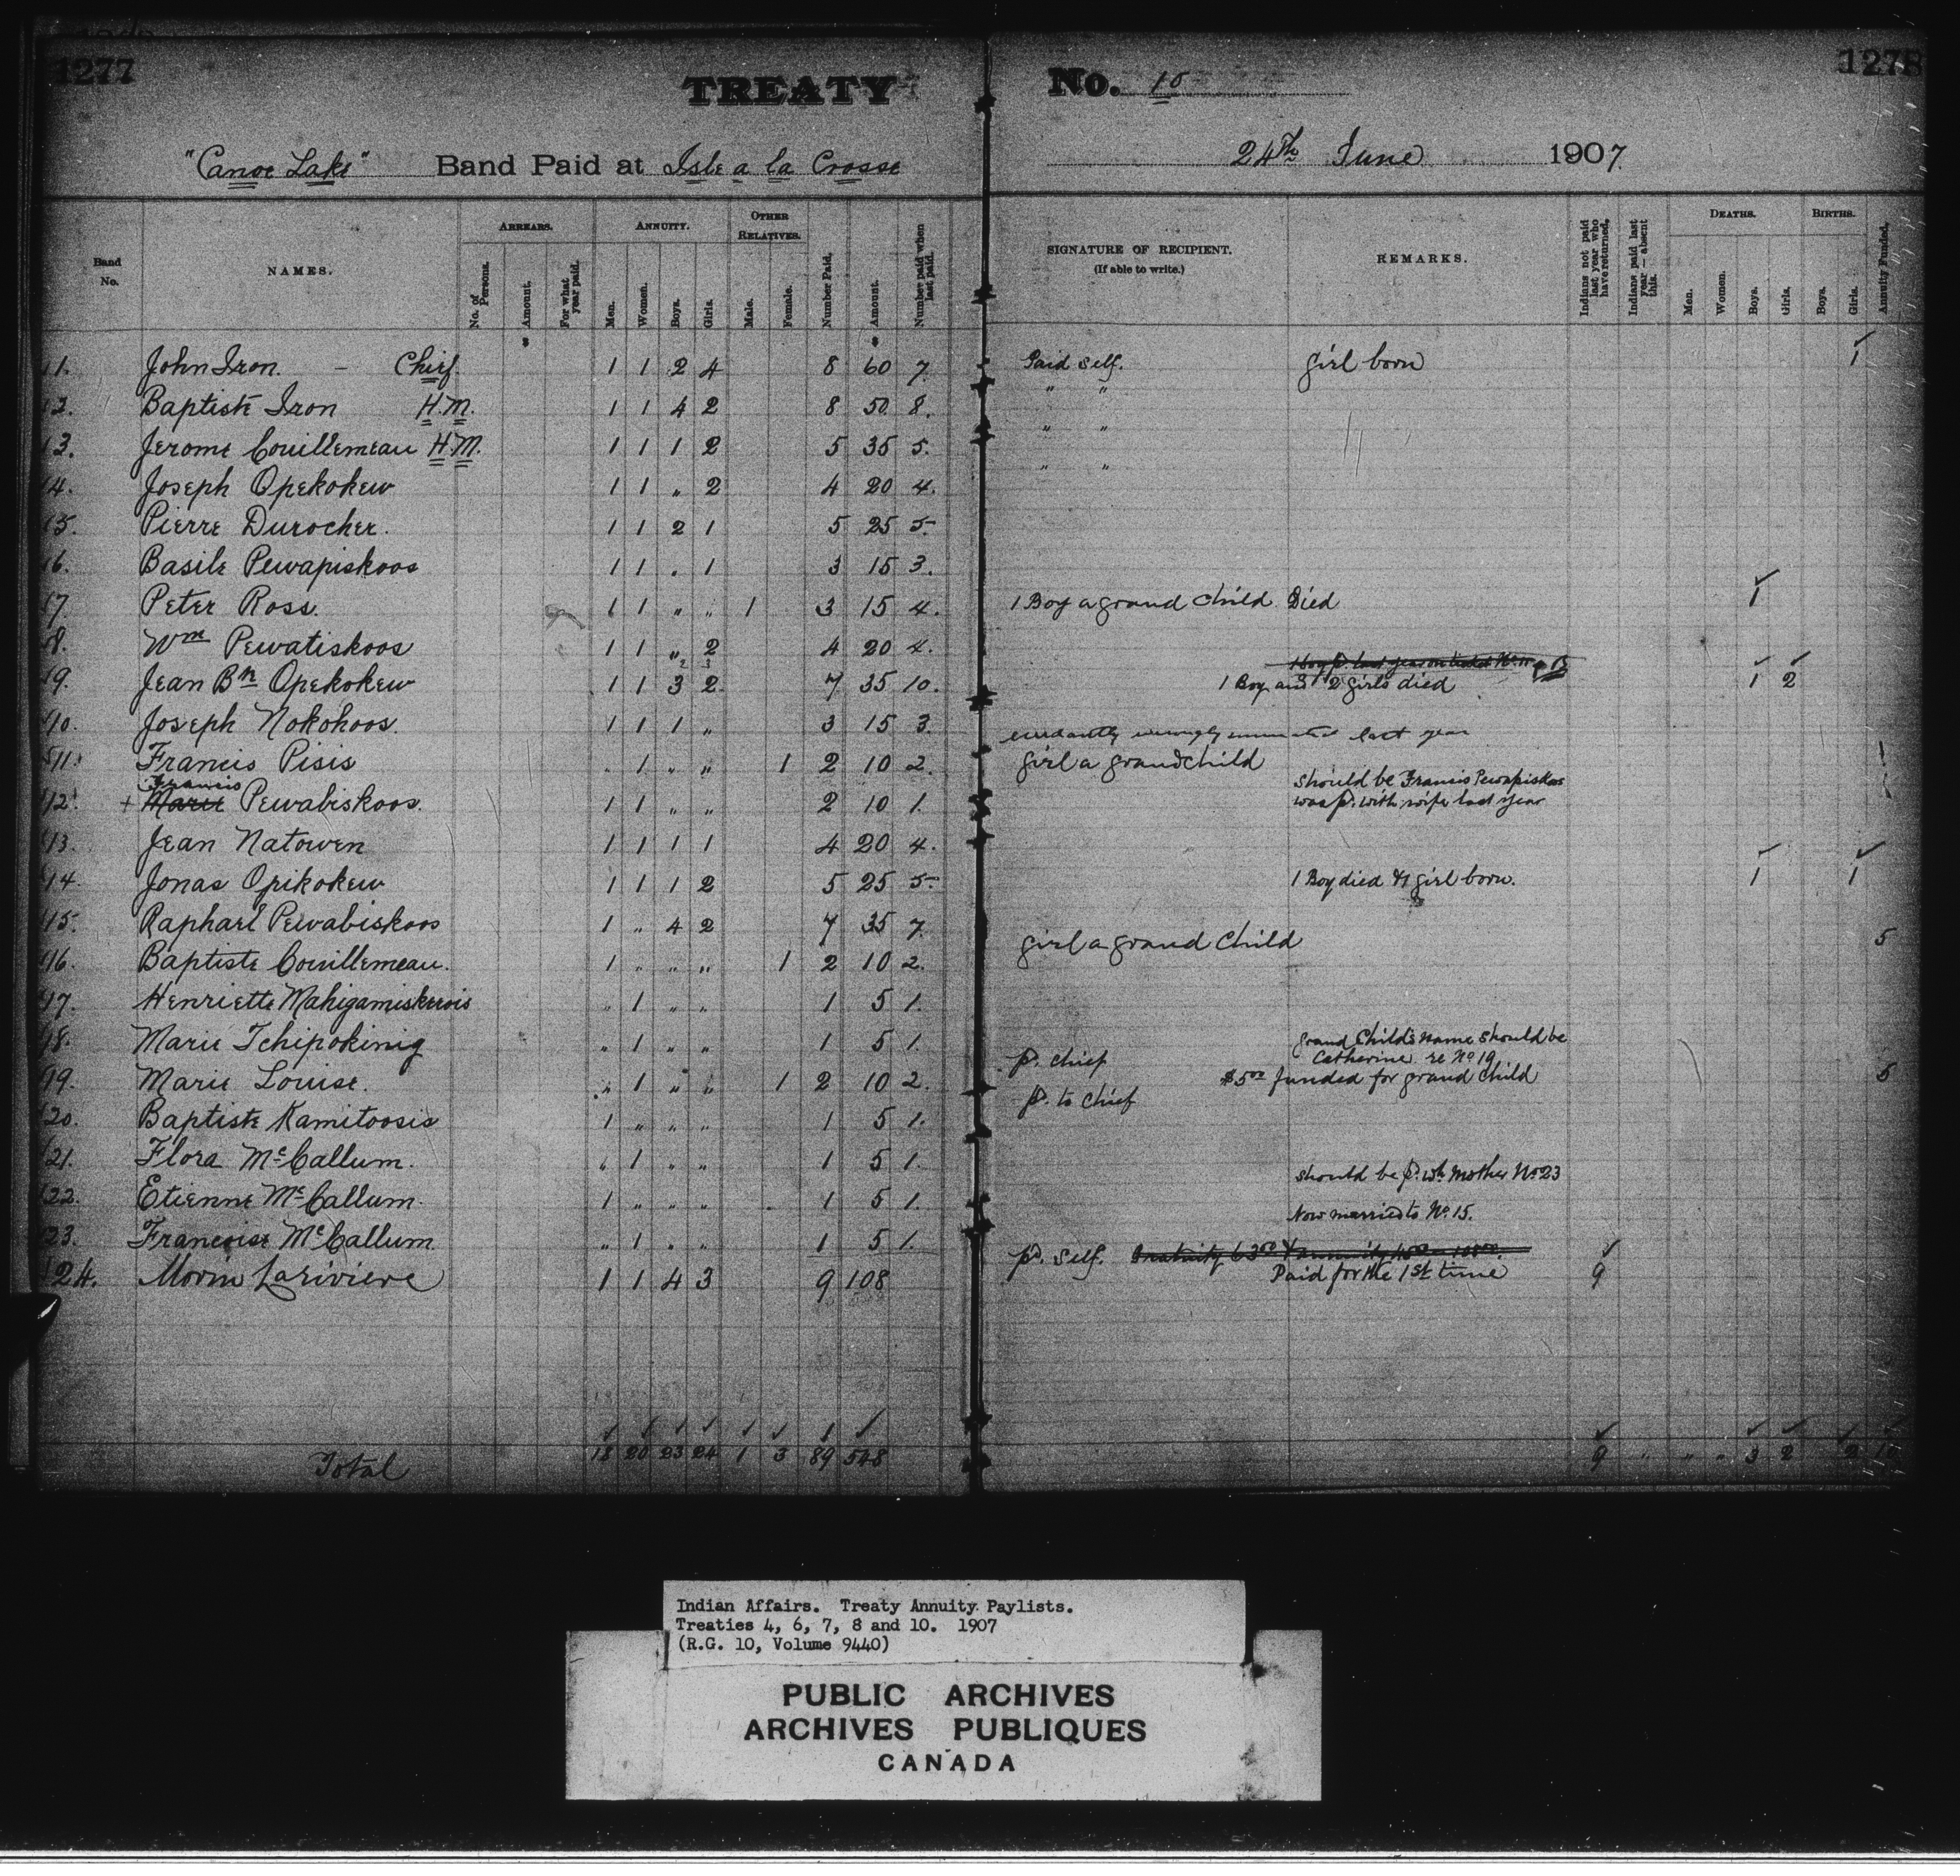 1277
TREATY No. 10
1278
"Canoe Lake" Band Paid at Isle a la Crosse 24th June 1907
Band No. NAMES. ARREARS. No. of Persons. Amount. For what year paid. ANNUITY. Men. Women. Boys. Girls. OTHER RELATIVES. Male. Female. Number Paid. Amount. Number paid when last paid. SIGNATURE OF RECIPIENT. (If able to write.) REMARKS. Indians not paid last year who have returned. Indians paid last year—absent this. DEATHS. Men. Women. Boys. Girls. BIRTHS. Boys. Girls. Annuity Funded.
$ $
1. John Iron. – Chief 1 1 2 4 8 60 7. Paid self. girl born 1
2. Baptiste Iron H.M. 1 1 4 2 8 50 8. " "
3. Jerome Couillemeau H.M. 1 1 1 2 5 35 5. " "
4. Joseph Opekokew 1 1 " 2 4 20 4. " "
5. Pierre Durocher. 1 1 2 1 5 25 5.
6. Basile Pewapiskoos 1 1 " 1 3 15 3.
7. Peter Ross. 1 1 " " 1 3 15 4. 1 Boy a grand child Died 1
8. Wm Pewatiskoos 1 1 " 2 4 20 4.
9. Jean Bte Opekokew 1 1 3 2 7 35 10. 1 Boy and 2 girls died 1 2
10. Joseph Nokohoos. 1 1 1 " 3 15 3.
last year
11. Francis Pisis " 1 " " 1 2 10 2. girl a grandchild
Francis
should be Francis Pewapiskoos
12. + Marie Pewabiskoos. 1 1 " " 2 10 1. was pd. with wife last year
13. Jean Natowen 1 1 1 1 4 20 4.
14. Jonas Opikokew 1 1 1 2 5 25 5. 1 Boy died & 1 girl born. 1 1
15. Raphael Pewabiskoos 1 " 4 2 7 35 7.
16. Baptiste Couillemeau. 1 " " " 1 2 10 2. girl a grand child 5
17. Henriette Mahigamiskwois " 1 " " 1 5 1.
18. Marie Tchipokinig " 1 " " 1 5 1.
grand Child's name should be
Catherine re No 19
19. Marie Louise. " 1 " " 1 2 10 2. pd. chief $5.00 funded for grand child 5
20. Baptiste Kamitoosis 1 " " " 1 5 1. pd. to chief
21. Flora McCallum. " 1 " " 1 5 1.
22. Etienne McCallum. 1 " " " 1 5 1. should be pd. wh. mother No 23
23. Francoise McCallum. " 1 " " 1 5 1. Now married to No. 15.
24. Morin Lariviere 1 1 4 3 9 108 pd. self. Paid for the 1st time 9
Total 18 20 23 24 1 3 89 548 9 " " " 3 2 2 10
Indian Affairs. Treaty Annuity Paylists.
Treaties 4, 6, 7, 8 and 10. 1907
(R.G. 10, Volume 9440)
PUBLIC ARCHIVES
ARCHIVES PUBLIQUES
CANADA